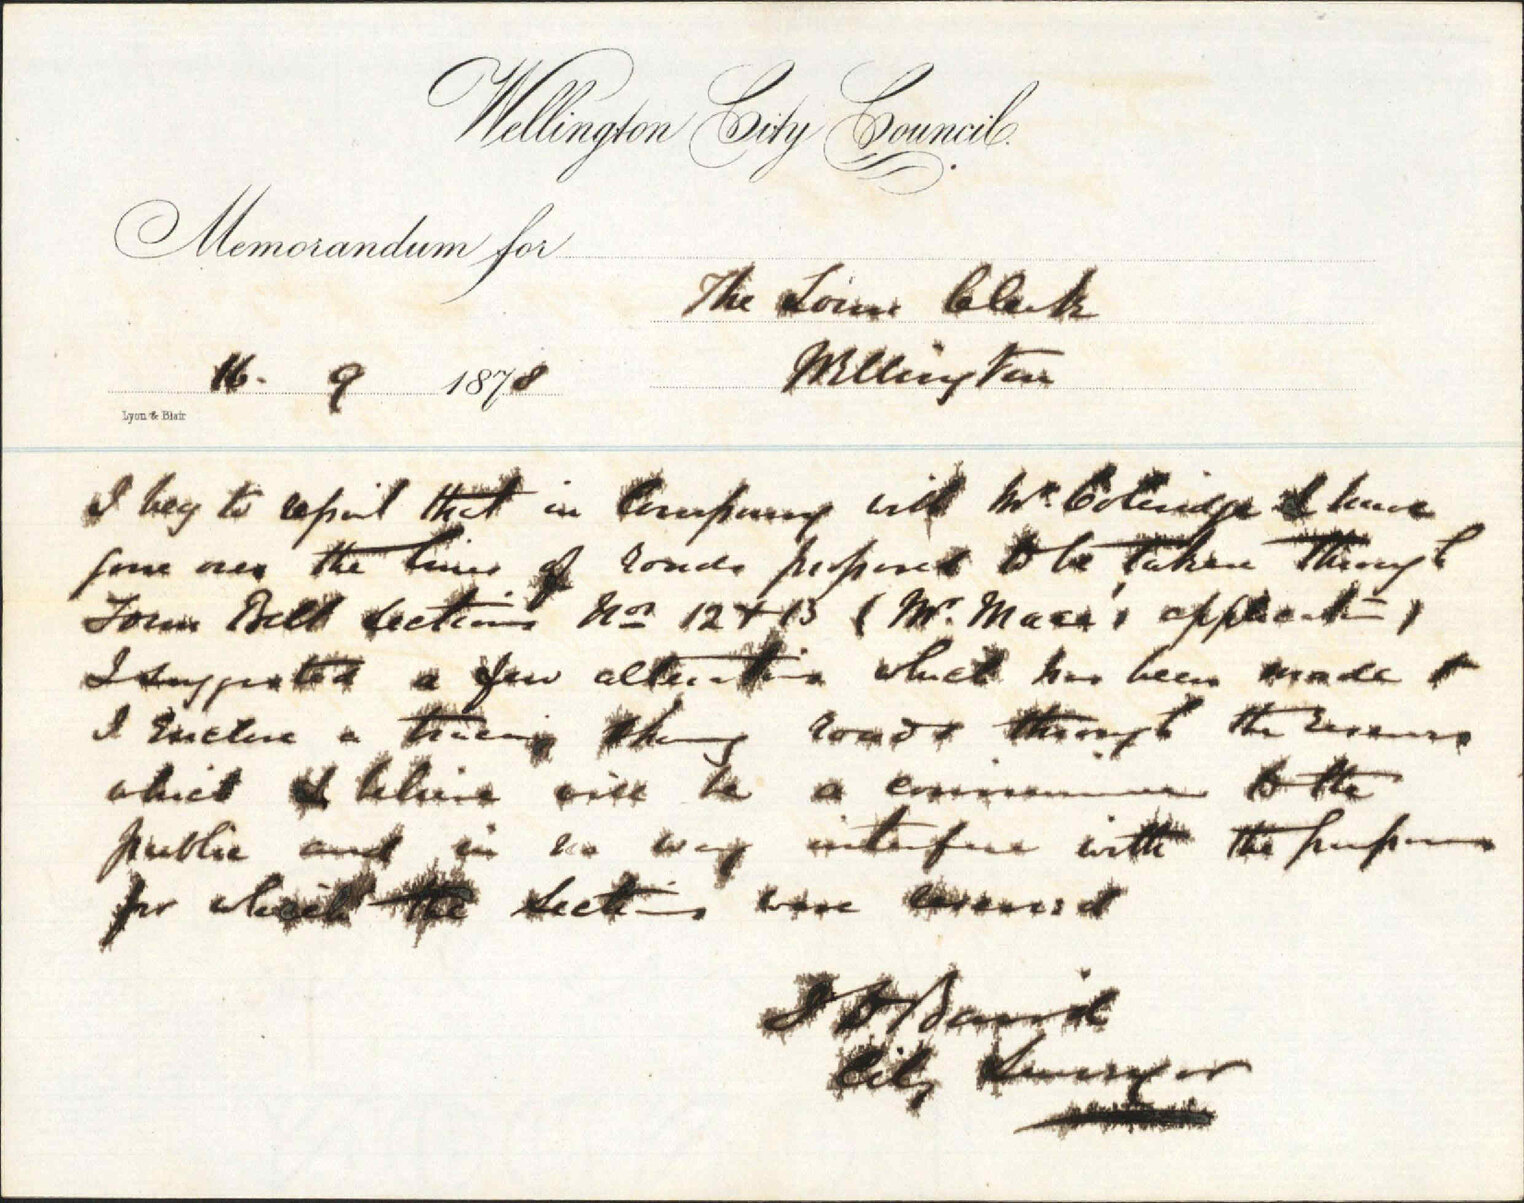 Wellington City Council.
Memorandum for
The Town Clerk
16. 9 1878 Wellington
Lyon & Blair
I beg to report that in Company with Mr. Coleridge I have
gone over the lines of roads proposed to be taken through
Town Belt sections Nos 12 & 13 (Mr. Mace's application)
I suggested a few alterations which has been made &
I enclose a tracing showing roads through the reserves
which I believe will be a convenience to the
public and in no way interfere with the purposes
for which the sections were reserved
J D Baird
City Surveyor